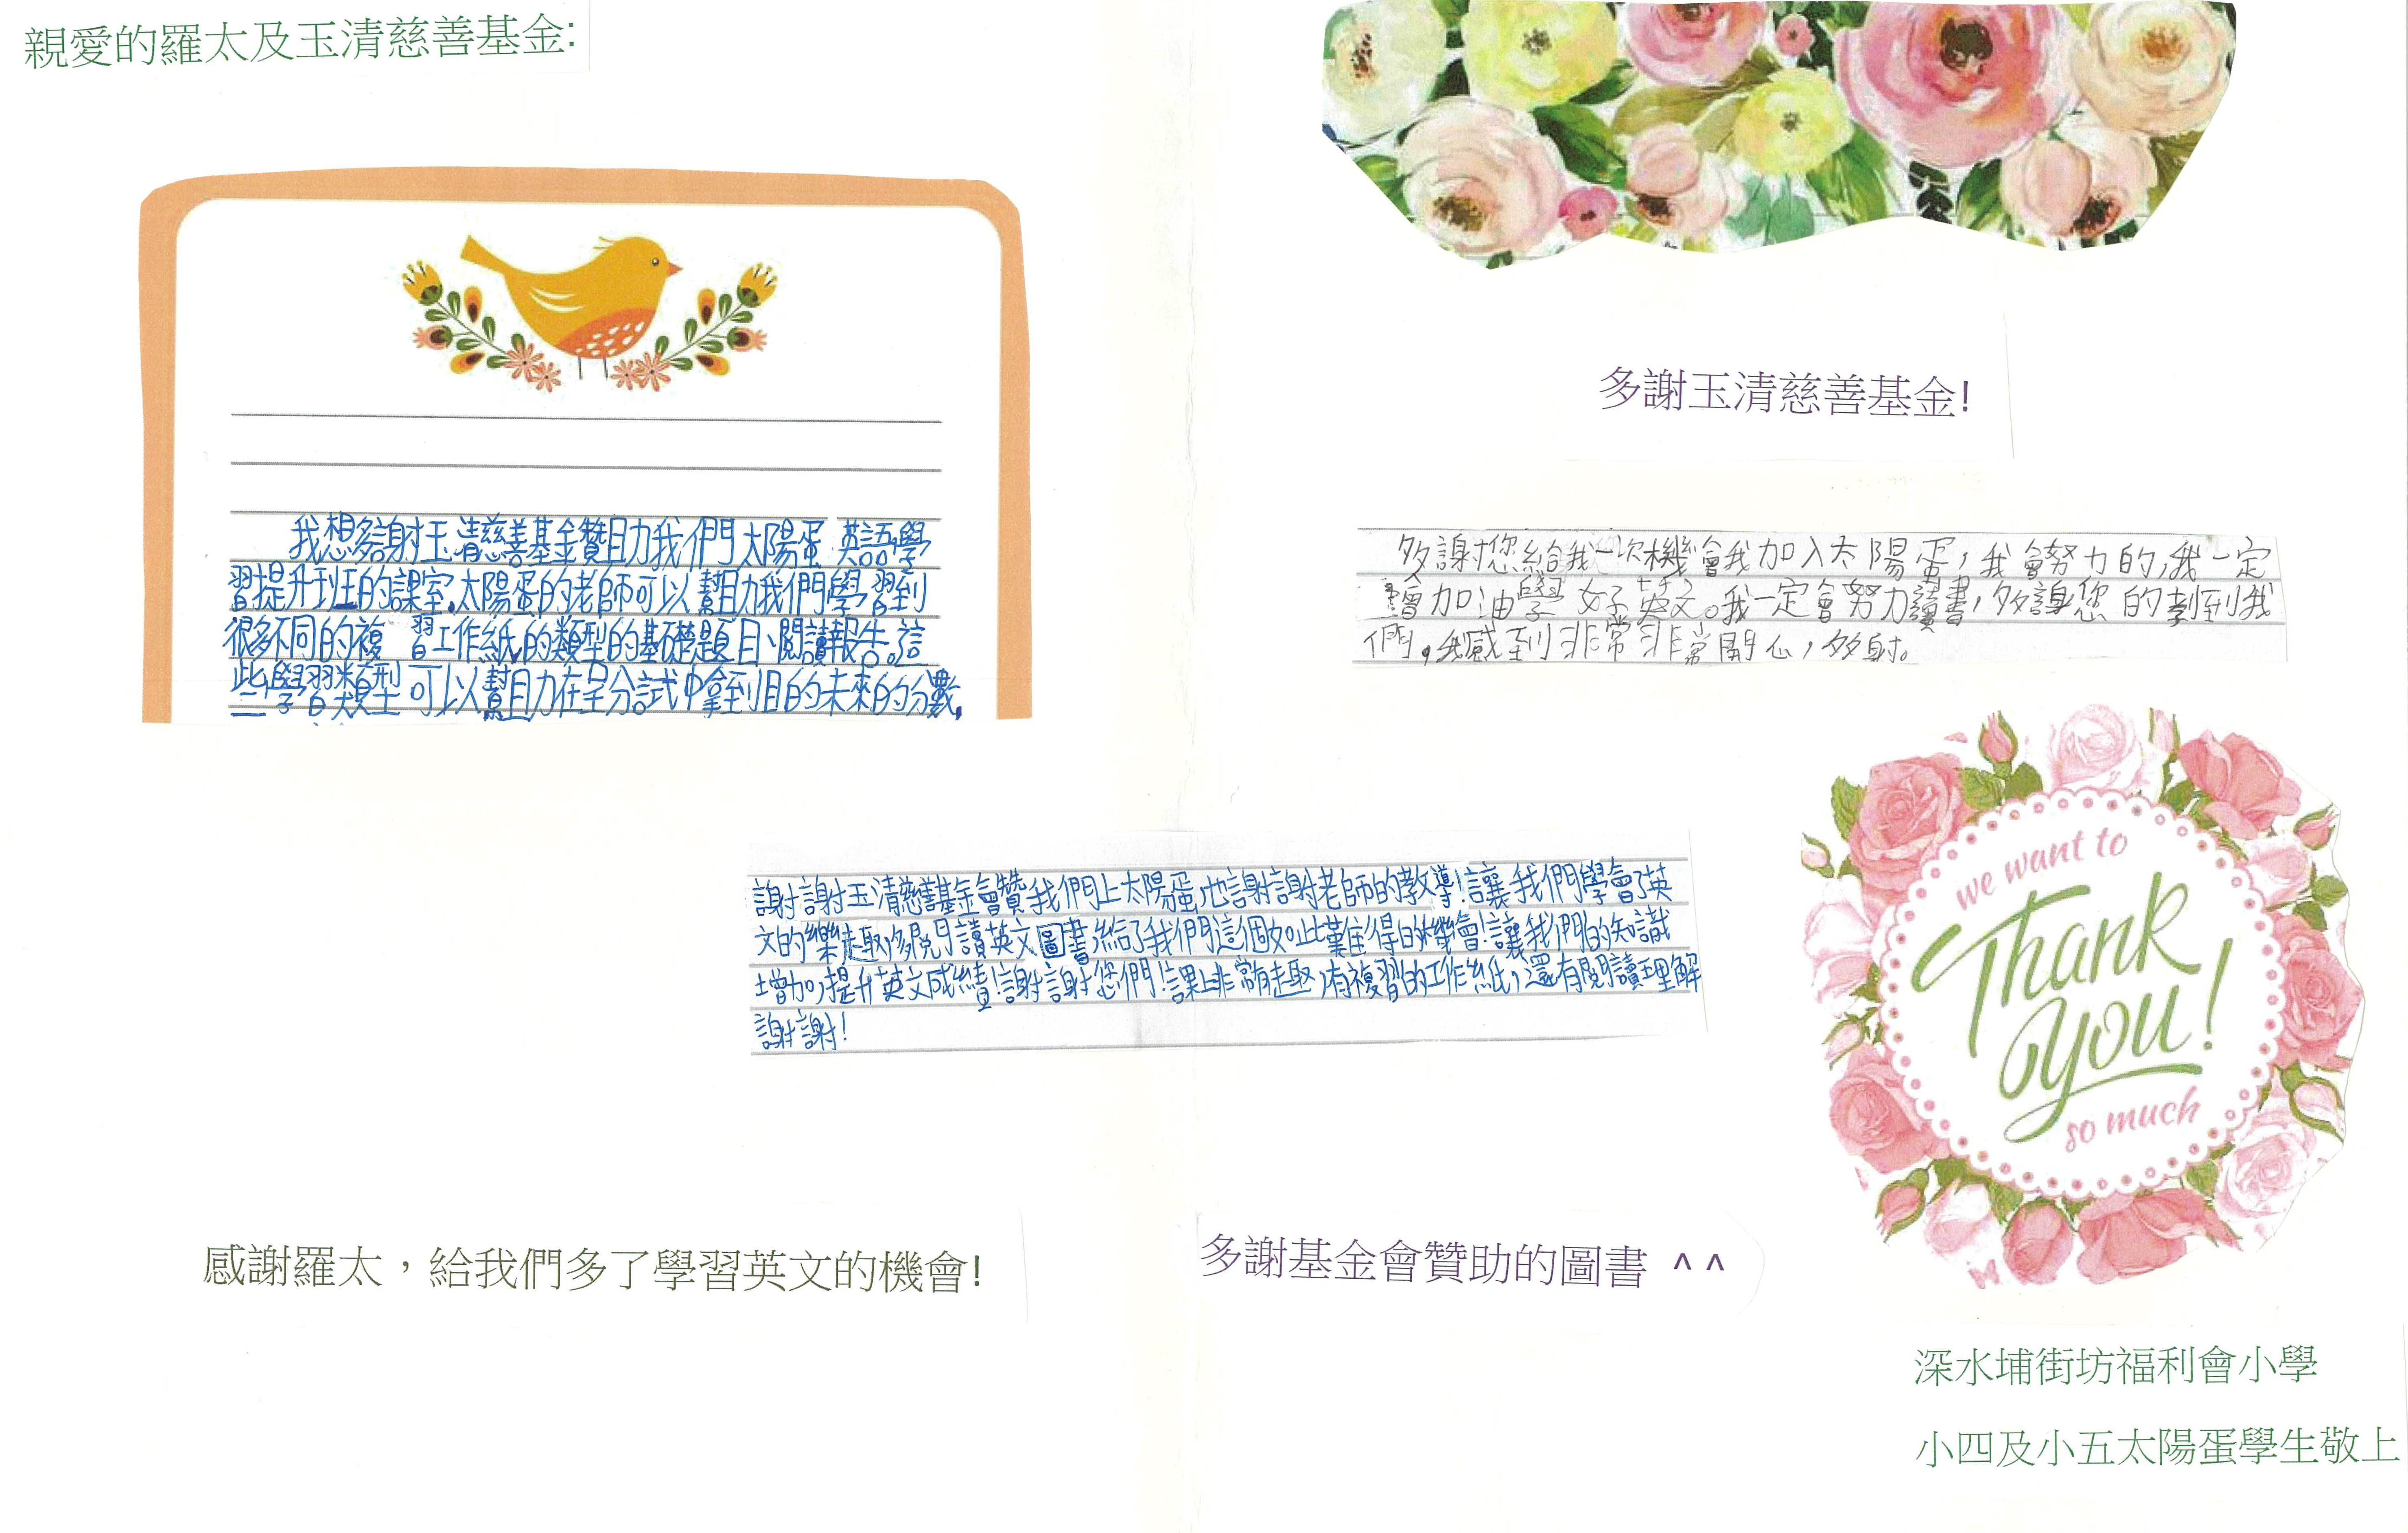 親愛的羅太及玉清慈善基金:
我想多謝玉清慈善基金贊助我們太陽蛋 英語學
習提升班的課室.太陽蛋的老師可以幫助我們學習到
很多不同的複習工作紙,的類型的基礎題目、閱讀報告。這
些學習類型可以幫助在呈分試中拿到目的未來的分數,
多謝玉清慈善基金!
多謝您給我一次機會我加入太陽蛋,我會努力的,我一定
會加油學好英文。我一定會努力讀書,多謝您的到我
們,我感到非常非常開心,多射。
謝謝玉清慈善基金會贊我們上太陽蛋,也謝謝老師的教導!讓我們學會了英
文的樂趣,多閱讀英文圖書,給了我們這個如此難得的機會!讓我們的知識
增加,提升英文成績!謝謝您們!課上非常有趣,有複習的工作紙,還有閱讀理解
謝謝!
we want to
Thank
you!
so much
感謝羅太，給我們多了學習英文的機會!
多謝基金會贊助的圖書 ^ ^
深水埔街坊福利會小學
小四及小五太陽蛋學生敬上